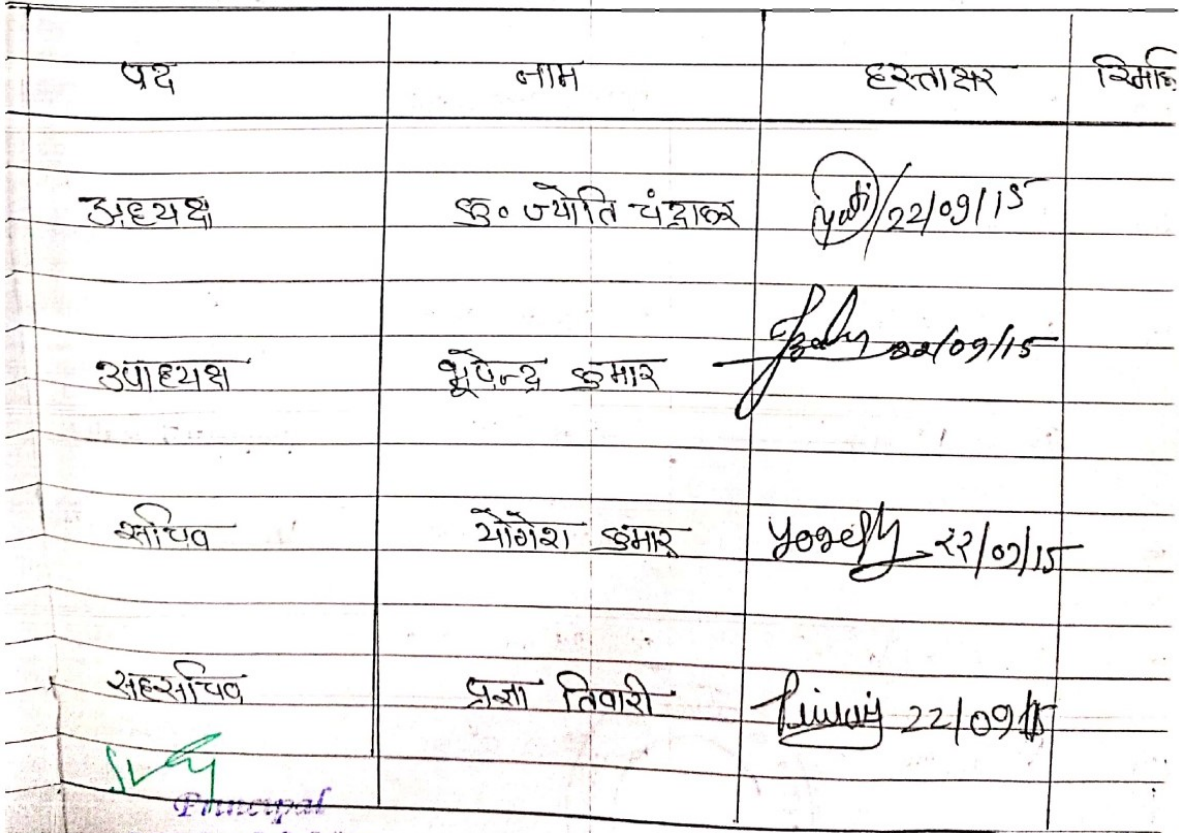 पद नाम हस्ताक्षर रिमार्क
अध्यक्ष कु० ज्योति चंद्राकर Jyoti 22/09/15
उपाध्यक्ष भूपेन्द्र कुमार 22/09/15
सचिव योगेश कुमार Yogesh 22/09/15
सहसचिव प्रज्ञा तिवारी Tiwari 22/09/15
Principal